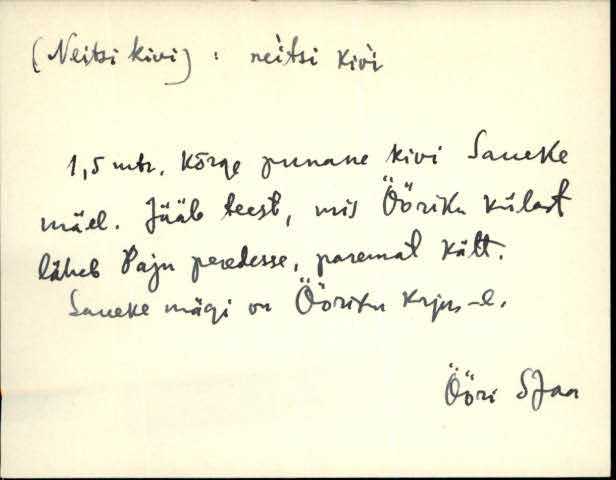 (Neitsi kivi) : nèitsi kivì
1,5 mtr. kõrge punane kivi Saueke
mäel. Jääb teest, mis Ööriku külast
läheb Paju peredesse, paremat kätt.
Saueke mägi on Ööriku karjus-e.
Ööri SJaa